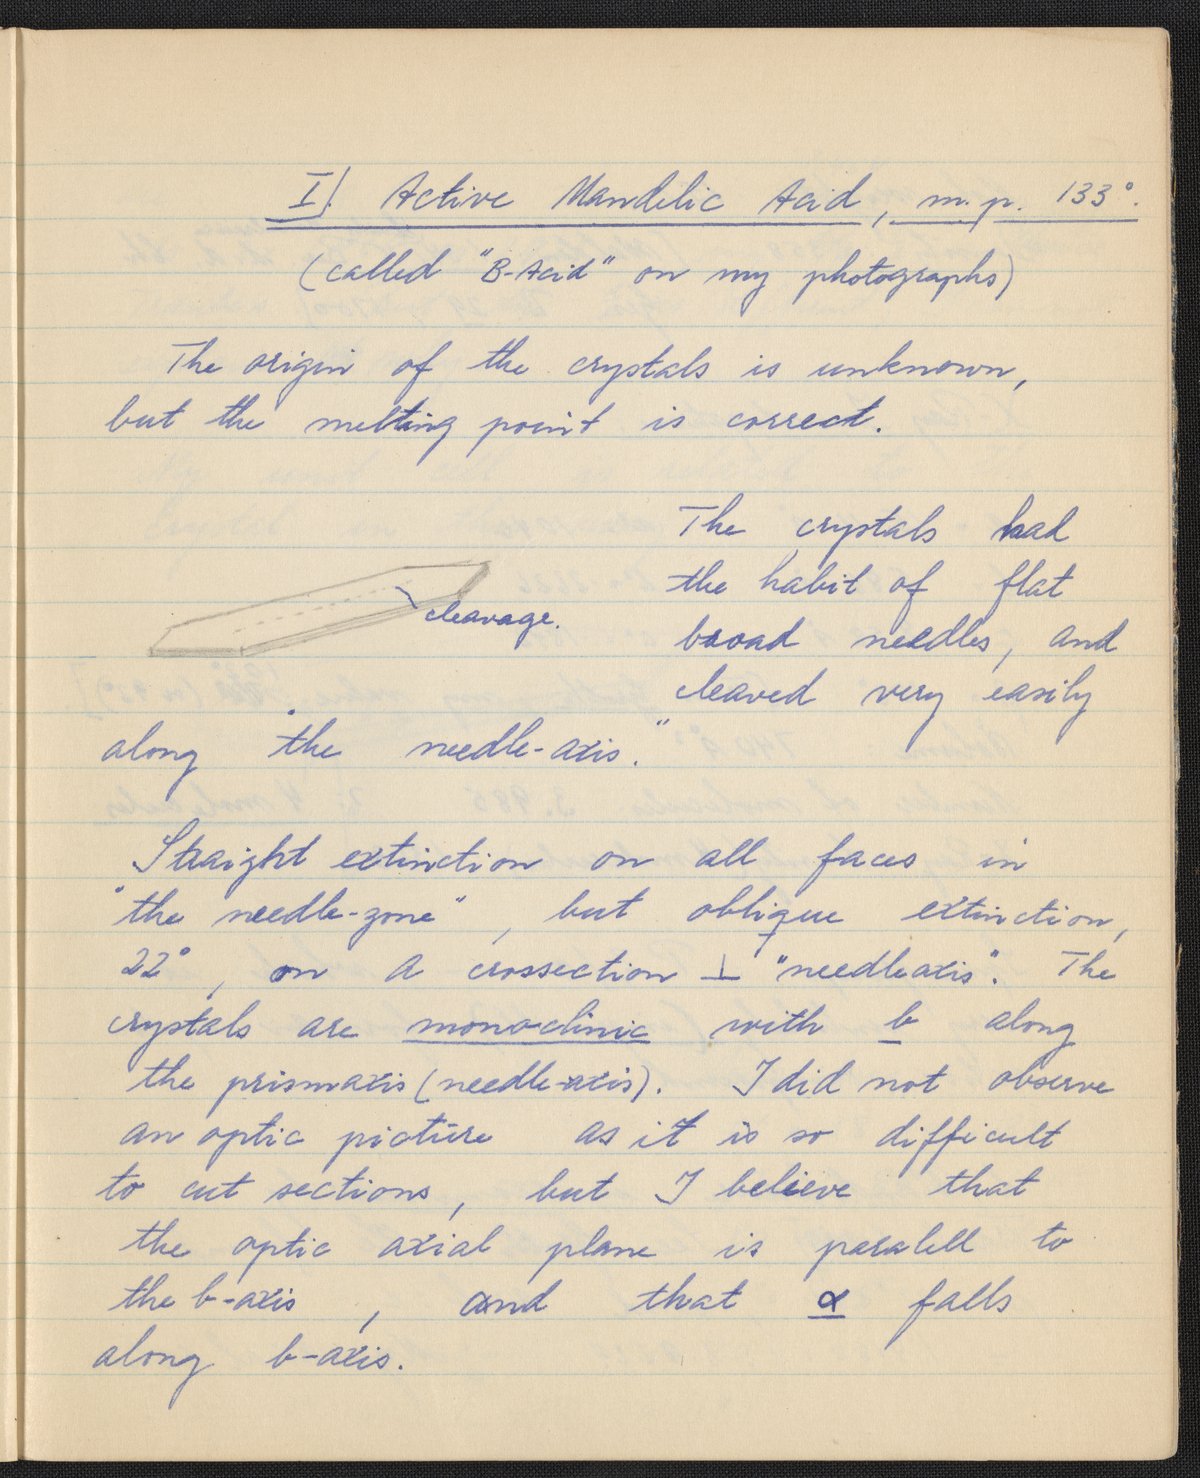 I/. Active Mandelic Acid, m.p. 133°.
(called "B-Acid" on my photographs)
The origin of the crystals is unknown,
but the melting point is correct.
The crystals had
the habit of flat
cleavage.
broad needles, and
cleaved very easily
along "the needle-axis."
Straight extinction on all faces in
"the needle-zone", but oblique extinction,
22°, on a crossection ⊥ "needleaxis". The
crystals are monoclinic with b along
the prismaxis (needle-axis). I did not observe
an optic picture as it is so difficult
to cut sections, but I believe that
the optic axial plane is paralell to
the b-axis, and that α falls
along b-axis.